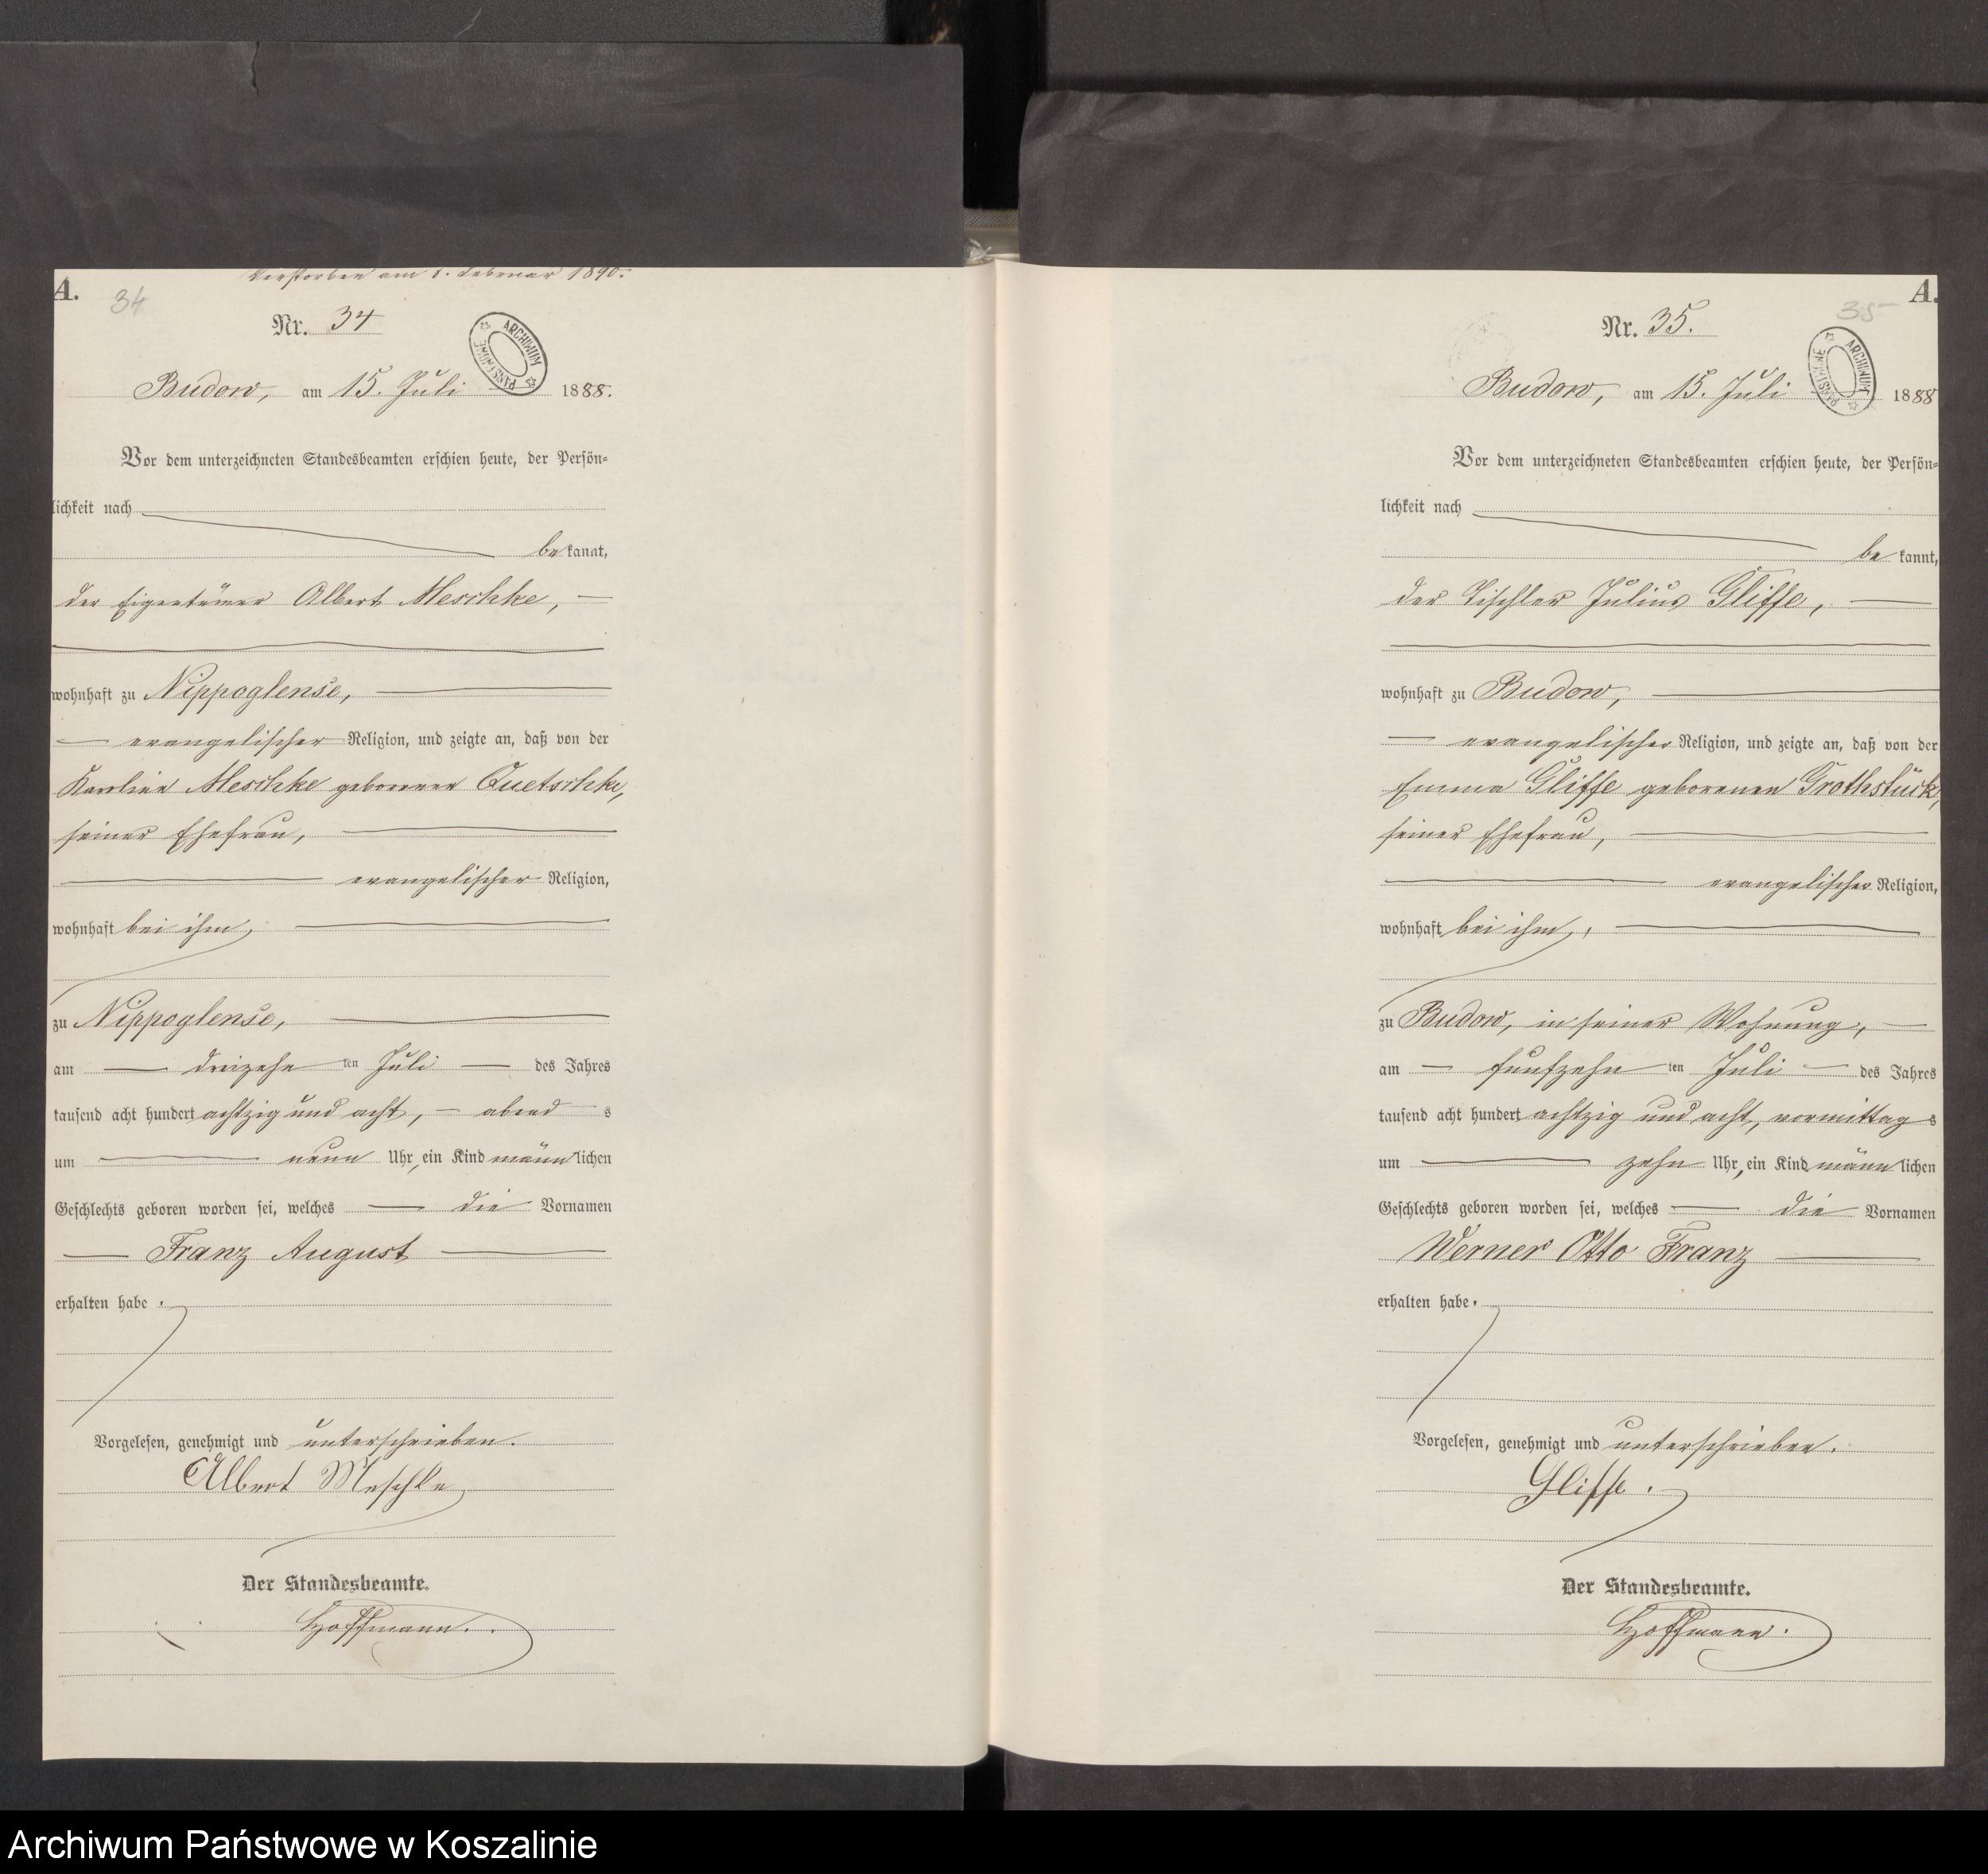 Verstorben am 1. Februar 1890.
A.
34
Nr. 34
ARCHIWUM PAŃSTWOWE
Budow, am 15. Juli 1888.
Vor dem unterzeichneten Standesbeamten erschien heute, der Persön-
lichkeit nach
be kannt,
der Eigentümer Albert Meschke,
wohnhaft zu Nippoglense,
evangelischer Religion, und zeigte an, daß von der
Karoline Meschke geborenen Quetschke,
seiner Ehefrau,
evangelischer Religion,
wohnhaft bei ihm,
zu Nippoglense,
am dreizehn ten Juli des Jahres
tausend acht hundert achtzig und acht, abend s
um neun Uhr, ein Kind männlichen
Geschlechts geboren worden sei, welches die Vornamen
Franz August
erhalten habe.
Vorgelesen, genehmigt und unterschrieben.
Albert Meschke
Der Standesbeamte.
Hoffmann.
A.
35
Nr. 35.
ARCHIWUM PAŃSTWOWE
Budow, am 15. Juli 1888
Vor dem unterzeichneten Standesbeamten erschien heute, der Persön-
lichkeit nach
be kannt,
der Tischler Julius Gliffe,
wohnhaft zu Budow,
evangelischer Religion, und zeigte an, daß von der
Emma Gliffe geborenen Grothstück,
seiner Ehefrau,
evangelischer Religion,
wohnhaft bei ihm,
zu Budow, in seiner Wohnung,
am fünfzehn ten Juli des Jahres
tausend acht hundert achtzig und acht, vormittag s
um zehn Uhr, ein Kind männlichen
Geschlechts geboren worden sei, welches die Vornamen
Werner Otto Franz
erhalten habe.
Vorgelesen, genehmigt und unterschrieben.
Gliffe.
Der Standesbeamte.
Hoffmann.
Archiwum Państwowe w Koszalinie